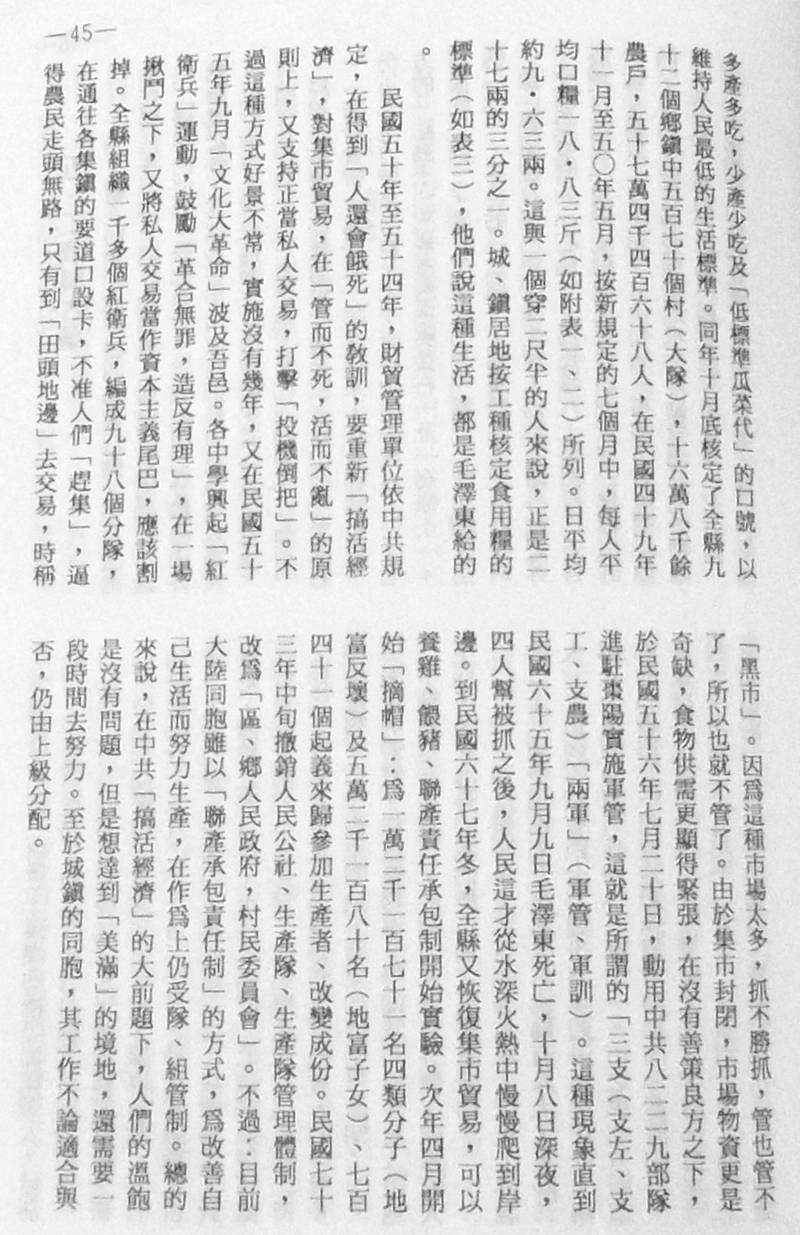 多產多吃，少產少吃及「低標準瓜菜代」的口號，以
維持人民最低的生活標準。同年十月底核定了全縣九
十二個鄉鎮中五百七十個村（大隊），十六萬八千餘
農戶，五十七萬四千四百六十八人，在民國四十九年
十一月至五〇年五月，按新規定的七個月中，每人平
均口糧一八・八三斤（如附表一、二）所列。日平均
約九・六三兩。這與一個穿二尺半的人來說，正是二
十七兩的三分之一。城、鎮居地按工種核定食用糧的
標準（如表三），他們說這種生活，都是毛澤東給的
。
民國五十年至五十四年，財貿管理單位依中共規
定，在得到「人還會餓死」的教訓，要重新「搞活經
濟」，對集市貿易，在「管而不死，活而不亂」的原
則上，又支持正當私人交易，打擊「投機倒把」。不
過這種方式好景不常，實施沒有幾年，又在民國五十
五年九月「文化大革命」波及吾邑。各中學興起「紅
衛兵」運動，鼓勵「革合無罪，造反有理」，在一場
揪鬥之下，又將私人交易當作資本主義尾巴，應該割
掉。全縣組織一千多個紅衛兵，編成九十八個分隊，
在通往各集鎮的要道口設卡，不准人們「趕集」，逼
得農民走頭無路，只有到「田頭地邊」去交易，時稱
「黑市」。因為這種市場太多，抓不勝抓，管也管不
了，所以也就不管了。由於集市封閉，市場物資更是
奇缺，食物供需更顯得緊張，在沒有善策良方之下，
於民國五十六年七月二十日，動用中共八二二九部隊
進駐棗陽實施軍管，這就是所謂的「三支（支左、支
工、支農）「兩軍」（軍管、軍訓）。這種現象直到
民國六十五年九月九日毛澤東死亡，十月八日深夜，
四人幫被抓之後，人民這才從水深火熱中慢慢爬到岸
邊。到民國六十七年冬，全縣又恢復集市貿易，可以
養雞、餵豬、聯產責任承包制開始實驗。次年四月開
始「摘帽」：為一萬二千一百七十一名四類分子（地
富反壞）及五萬二千一百八十名（地富子女）、七百
四十一個起義來歸參加生產者、改變成份。民國七十
三年中旬撤銷人民公社、生產隊、生產隊管理體制，
改為「區、鄉人民政府，村民委員會」。不過：目前
大陸同胞雖以「聯產承包責任制」的方式，為改善自
己生活而努力生產，在作為上仍受隊、組管制。總的
來說，在中共「搞活經濟」的大前題下，人們的溫飽
是沒有問題，但是想達到「美滿」的境地，還需要一
段時間去努力。至於城鎮的同胞，其工作不論適合與
否，仍由上級分配。
—45—